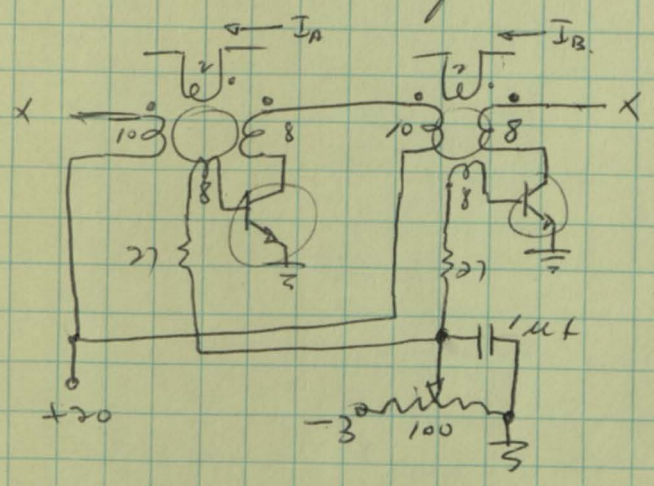 I_A
I_B.
2
2
X
10
8
10
8
X
8
8
27
27
.1 μf
+20
-3
100